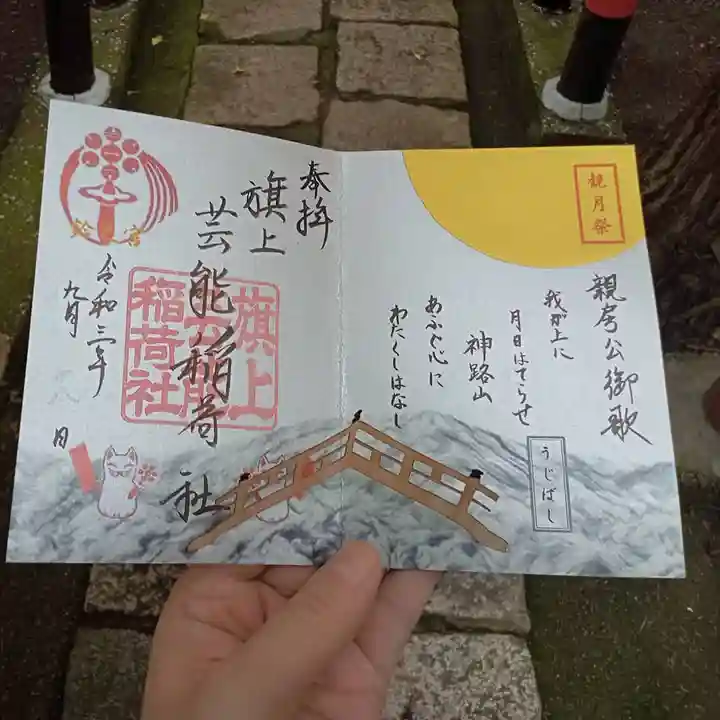 観月祭
親房公御歌
我が上に
月日はてらせ
神路山
あふぐ心に
わたくしはなし
うじばし
奉拝
旗上
芸能稲荷社
旗上
芸能
稲荷社
令和三年
九月
日